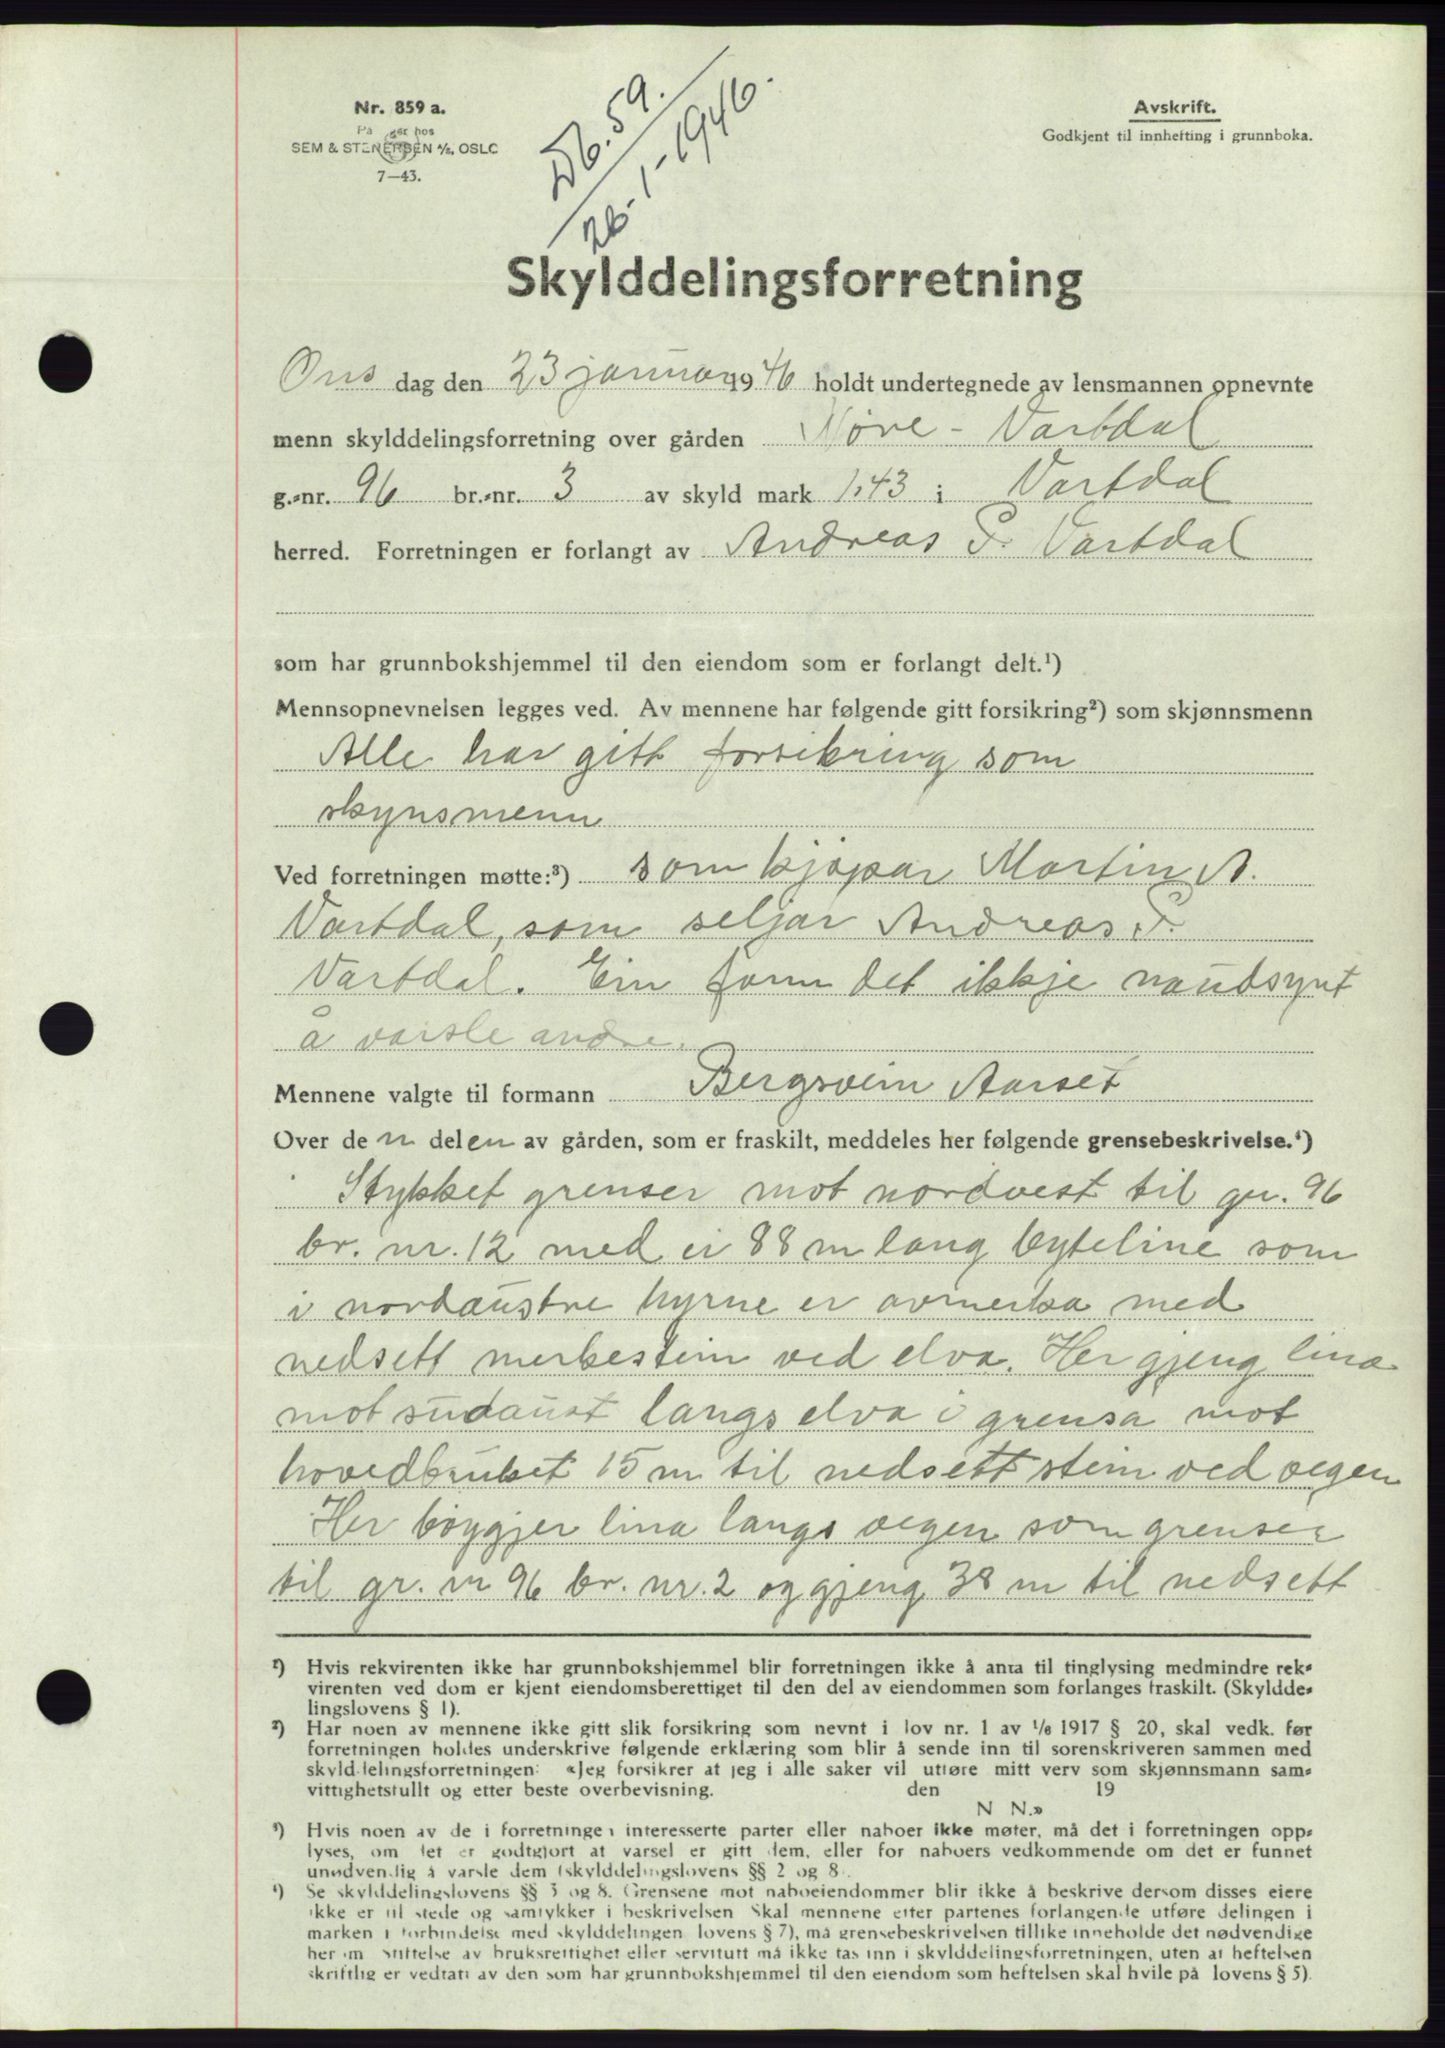 Nr. 859 a.
På lager hos
SEM & STENERSEN A/S, OSLO
7—43.
Db. 59.
26-1-1946.
Avskrift.
Godkjent til innhefting i grunnboka.
Skylddelingsforretning
Ons dag den 23 januar 1946 holdt undertegnede av lensmannen opnevnte
menn skylddelingsforretning over gården Nøre - Vartdal
g.-nr. 96 br.-nr. 3 av skyld mark 1,43 i Vartdal
herred. Forretningen er forlangt av Andreas P. Vartdal
som har grunnbokshjemmel til den eiendom som er forlangt delt.¹)
Mennsopnevnelsen legges ved. Av mennene har følgende gitt forsikring²) som skjønnsmenn
Alle har gitt forsikring som
skynsmenn
Ved forretningen møtte:³) som kjøpar Martin A.
Vartdal, som seljar Andreas P.
Vartdal. Ein fann det ikkje naudsynt
å varsle andre.
Mennene valgte til formann Bergsvein Aarset
Over den delen av gården, som er fraskilt, meddeles her følgende grensebeskrivelse.⁴)
Stykket grenser mot nordvest til gn. 96
br. nr. 12 med ei 88 m lang byteline som
i nordaustre hyrne er avmerka med
nedsett merkestein ved elva. Her gjeng lina
mot sudaust langs elva i grensa mot
hovedbruket 15 m til nedsett stein ved vegen
Her bøygjer lina langs vegen som grenser
til gr. nr 96 br. nr. 2 og gjeng 38 m til nedsett
¹) Hvis rekvirenten ikke har grunnbokshjemmel blir forretningen ikke å anta til tinglysing medmindre rek-
virenten ved dom er kjent eiendomsberettiget til den del av eiendommen som forlanges fraskilt. (Skyldde-
lingslovens § 1).
²) Har noen av mennene ikke gitt slik forsikring som nevnt i lov nr. 1 av 1/6 1917 § 20, skal vedk. før
forretningen holdes underskrive følgende erklæring som blir å sende inn til sorenskriveren sammen med
skylddelingsforretningen: «Jeg forsikrer at jeg i alle saker vil utføre mitt verv som skjønnsmann sam-
vittighetsfullt og etter beste overbevisning. den 19
N N.»
³) Hvis noen av de i forretningen interesserte parter eller naboer ikke møter, må det i forretningen opp-
lyses, om det er godtgjort at varsel er gitt dem, eller for naboers vedkommende om det er funnet
unødvendig å varsle dem (skylddelingslovens §§ 2 og 8).
⁴) Se skylddelingslovens §§ 3 og 8. Grensene mot naboeiendommer blir ikke å beskrive dersom disses eiere
ikke er til stede og samtykker i beskrivelsen Skal mennene etter partenes forlangende utføre delingen i
marken i forbindelse med skylddelingen lovens § 7), må grensebeskrivelsen tillike inneholde det nødvendige
her om Stiftelse av bruksrettighet eller servitutt må ikke tas inn i skylddelingsforretningen, uten at heftelsen
skriftlig er vedtatt av den som har grunnbokshjemmel til den eiendom som heftelsen skal hvile på lovens § 5).